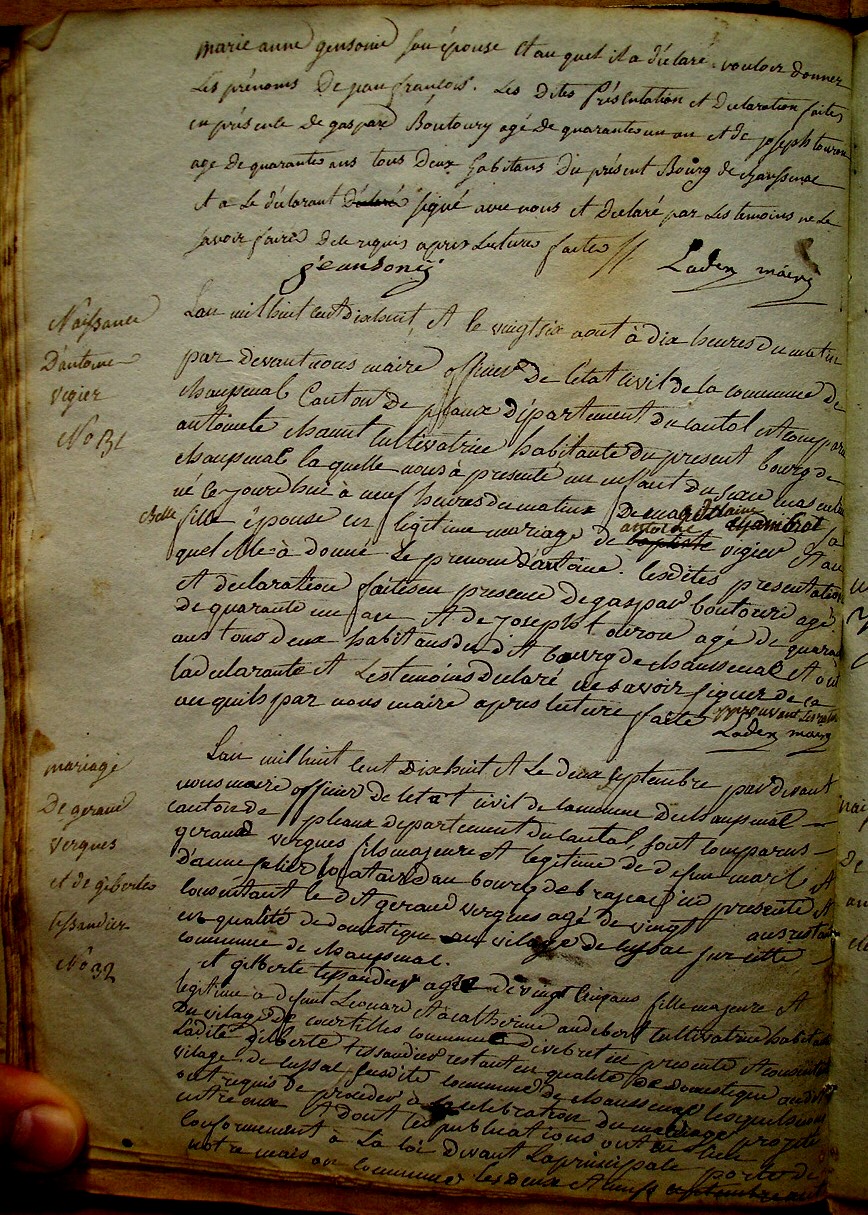 marie anne gensonie son épouse et au quel il a déclaré vouloir donner
Les prénoms De jean francois. Les Dites Présentation et Declaration faites
en présence De gaspard Boutoury agé De quarante un an et de joseph touron
agé de quarante ans tous Deux habitans Du présent Bourg de chaussenac
et a Le déclarant Déclaré signé avec nous et Declaré par Les temoins ne Le
savoir faire De le requis apres Lecture faite //
Laden maire
Naissance
D'antoine
vigier
No 31
Lan mil huit cent Dix huit et le vingt six aout à dix heures du matin
par devant nous maire officier De l'état civil de la commune de
chaussenac Canton De pleaux Département du cantal est comparu
antoinete chanut cultivatrice habitante du present bourg de
chaussenac la quelle nous à presenté un enfant du sexe masculin
né ce jourdhui à neuf heures du matin De magdelaine chambrot sa
Belle fille épouse en legitime mariage de baptiste antoine vigier et au
quel elle à donné Le prenom D'antoine. Lesdites presentation
et declaration faites en presence De gaspard boutourie agé
de quarante un an et De joseph touron agé De quarante
ans tous deux habitans du dit bourg de chaussenac et ont
la declarante et Les temoins declaré ne savoir signer de ce
enquis par nous maire apres lecture faite
Laden maire
mariage
De geraud
vergues
et de gilberte
tissandier
No 32
Lan mil huit cent Dix huit et Le deux septembre par devant
nous maire officier de letat civil de la commune de chaussenac
canton de pleaux departement du cantal sont comparus
geraud vergues fils majeure et legitime de defun
D'anne locataire au bourg de presente et
consentant le dit geraud vergues agé de vingt ans restant
en qualité de domestique au village de lussac sur cette
commune de chaussenac.
et gilberte tissandier agée de vingt ans fille majeure et
legitime à defunt Léonard et à catherine audebert cultivatrice habitante
Du village De courtilles commune presente et consentante
Ladite gilberte tissandier restant en qualité De Domestique audit
village de lussac susdite commune De chaussenac lesquels nous
ont requis de proceder à la celebration du mariage projeté
entre eux et dont les publications ont été
conformement à La loi Devant La principale porte de
notre maison commune les deux et neuf